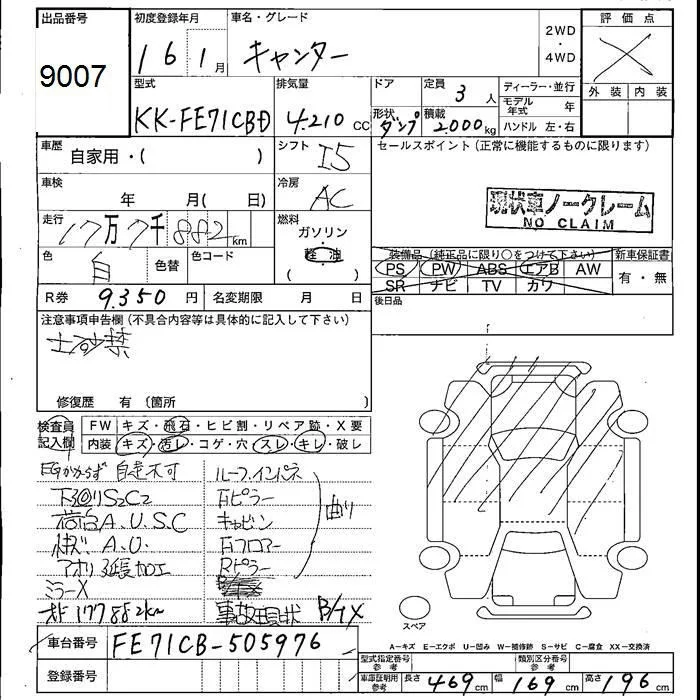 出品番号
9007
初度登録年月
16 1月
車名・グレード
キャンター
2WD
・
4WD
評価点
外装 内装
型式
KK-FE71CBD
排気量
4.210cc
ドア
形状 ダンプ
定員 3人
積載 2000kg
ディーラー・並行
モデル年式 年
ハンドル 左・右
車歴
自家用・( )
シフト I5
セールスポイント (正常に機能するものに限ります)
現状車ノークレーム
NO CLAIM
車検
年 月( 日)
冷房 AC
走行
17万7千882km
燃料
ガソリン
軽油
( )
色 白
色替
色コード
装備品 (純正品に限り○をつけて下さい)
PS PW ABS エアB AW
SR ナビ TV カワ
新車保証書
有・無
R券 9.350円
名変期限 月 日
後日品
注意事項申告欄 (不具合内容等は具体的に記入して下さい)
土砂禁
修復歴 有 (箇所 )
検査員記入欄
FW キズ・飛石・ヒビ割・リペア跡・X要
内装 キズ・汚レ・コゲ・穴・スレ・キレ・破レ
EGかからず 自走不可
下回りS2C2
荷台A.U.S.C
A.U.
アオリ延長加工
ミラーX
177882km
ルーフ.インパネ
右ピラー
キャビン
右フロアー
Rピラー
曲り
事故現状 B/TX
スペア
A－キズ E－エクボ U－凹み W－補修跡 S－サビ C－腐食 XX－交換済
車台番号 FE71CB-505976
登録番号
型式指定番号参考
類別区分番号参考
車庫証明用参考 長さ 469cm 幅 169cm 高さ 196cm